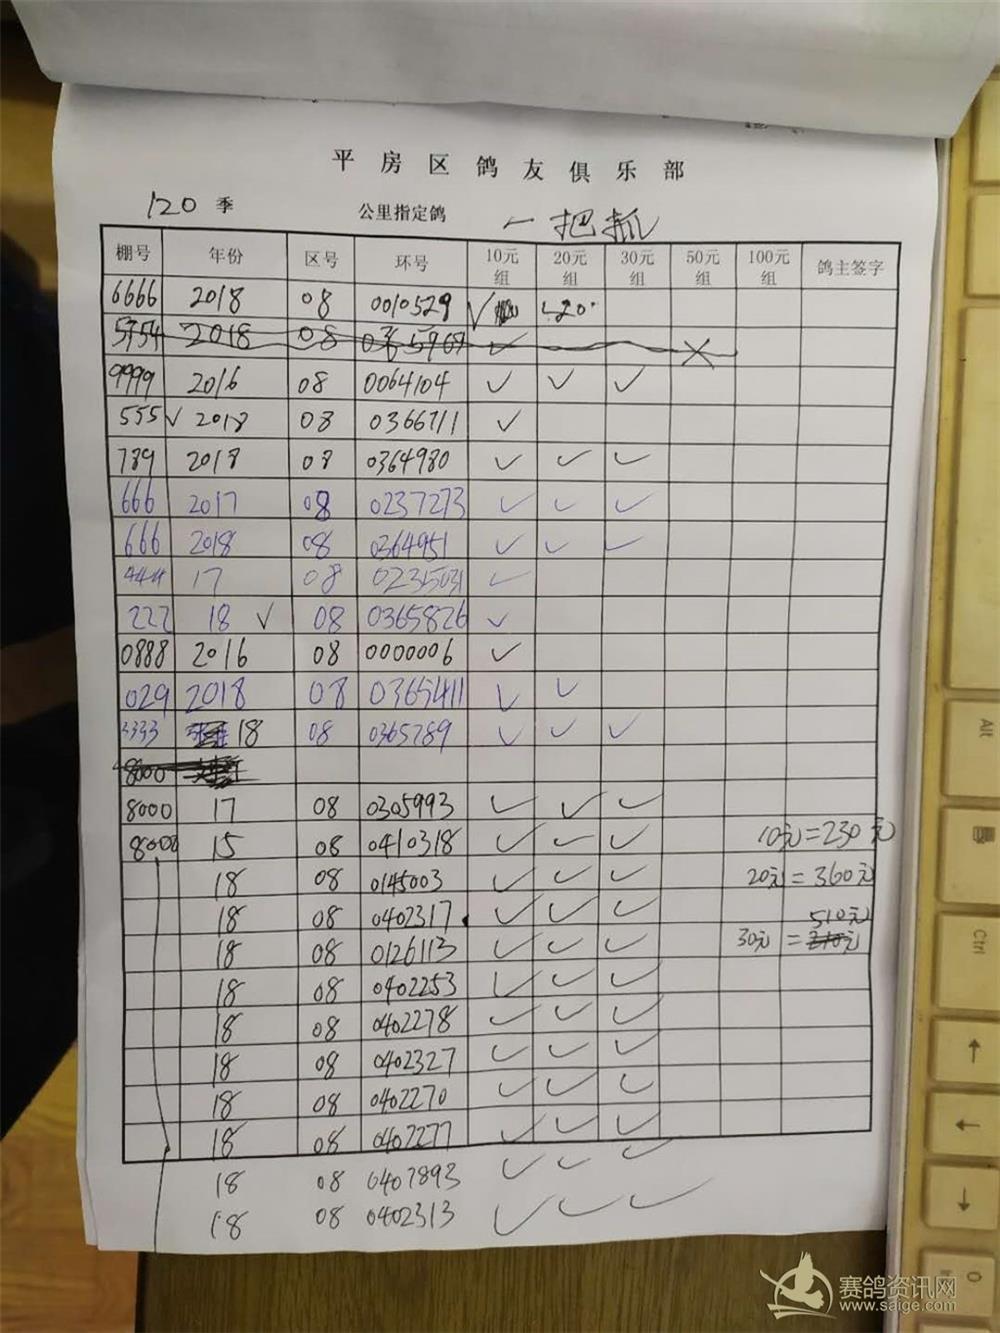 平房区鸽友俱乐部
120 季 公里指定鸽 一把抓
棚号 年份 区号 环号 10元组 20元组 30元组 50元组 100元组 鸽主签字
6666 2018 08 0010529 ✓ 20
5754 2018 08 ✓ ✗
9999 2016 08 0064104 ✓ ✓ ✓
555 ✓ 2018 08 0366711 ✓
789 2018 08 0364980 ✓ ✓ ✓
666 2017 08 0237273 ✓ ✓ ✓
666 2018 08 0364951 ✓ ✓ ✓
444 17 08 0235031 ✓
222 18 ✓ 08 0365826 ✓
0888 2016 08 0000006 ✓
029 2018 08 0365411 ✓ ✓
3333 18 08 0365789 ✓ ✓ ✓
8000
8000 17 08 0305993 ✓ ✓ ✓
8000 15 08 0410318 ✓ ✓ ✓ 10元=230元
18 08 0145003 ✓ ✓ ✓ 20元=360元
18 08 0402317 ✓ ✓ ✓ 510元
18 08 0126113 ✓ ✓ ✓ 30元=
18 08 0402253 ✓ ✓ ✓
18 08 0402278 ✓ ✓ ✓
18 08 0402327 ✓ ✓ ✓
18 08 0402270 ✓ ✓ ✓
18 08 0402277 ✓ ✓ ✓
18 08 0407893 ✓ ✓ ✓
18 08 0402313 ✓ ✓ ✓
Alt
Ctrl
赛鸽资讯网
www.saige.com